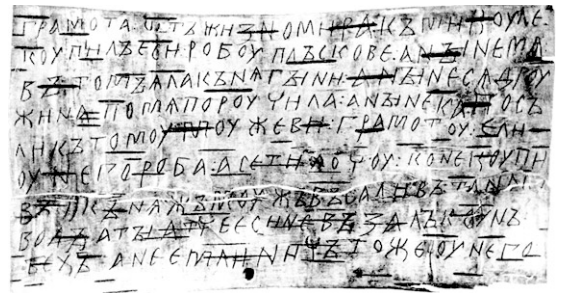 грамота:ѡтъжизномира:къмикоуле:
коупилъеси:робоу:плъскове:анꙑнемѧ:
вътомъ:ѧлакънѧгꙑни:анꙑнесѧдроу
жина:помѧпороучила:анꙑнека:посъ
ликътомоу:моужеви:грамотоу:ели
оунегороба:асетихочоу:конекоупи
въ:икънѧжъмоужъвъсадивъ:танасъ
водꙑ:атꙑатчеесиневъзалъкоунъ:
техъ:анеемли:ничътожеоунего: